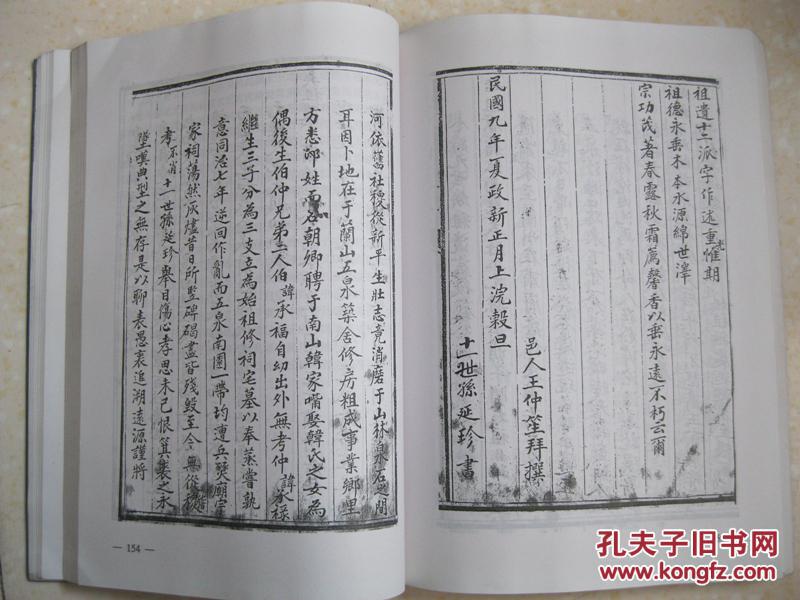 河依舊社稷從新平生壯志竟消磨于山林泉石之間
耳因卜地在于蘭山五泉築舍修房粗成事業鄉里
方悉郎姓而名朝卿聘于南山韓家嘴娶韓氏之女為
偶後生伯仲兄弟二人伯諱承福自幼出外無考仲諱承禄
繼生三子分為三支立為始祖修祠宅墓以奉蒸嘗孰
意同治七年逆回作亂而五泉南園一帶均遭兵燹廟宇
家祠蕩然灰燼昔日所竪碑碣盡皆殘毀至今無後稽
考不肖十一世孫延珍舉目傷心孝思未已恨箕裘之永
墜嘆典型之無存是以聊表愚衷追溯遠源謹將
— 154 —
祖遺十二派字作述重惟光期
祖德永垂木本水源綿世澤
宗功茂著春露秋霜薦馨香以垂永遠不朽云爾
邑人王仲笙拜撰
民國九年夏政新正月上浣穀旦
十一世孫延珍書
孔夫子旧书网
www.kongfz.com